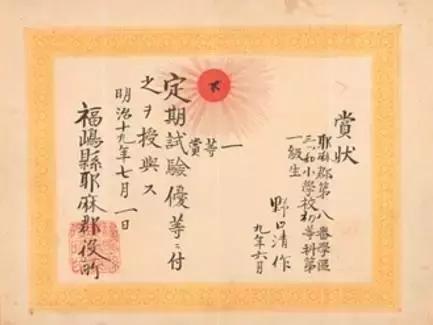 賞状
耶麻郡第八番學區
三ッ和小学校初等科第
一級生
野口清作
九年六月
一等賞
定期試驗優等ニ付
之ヲ授與ス
明治十九年七月一日
福嶋縣耶麻郡役所